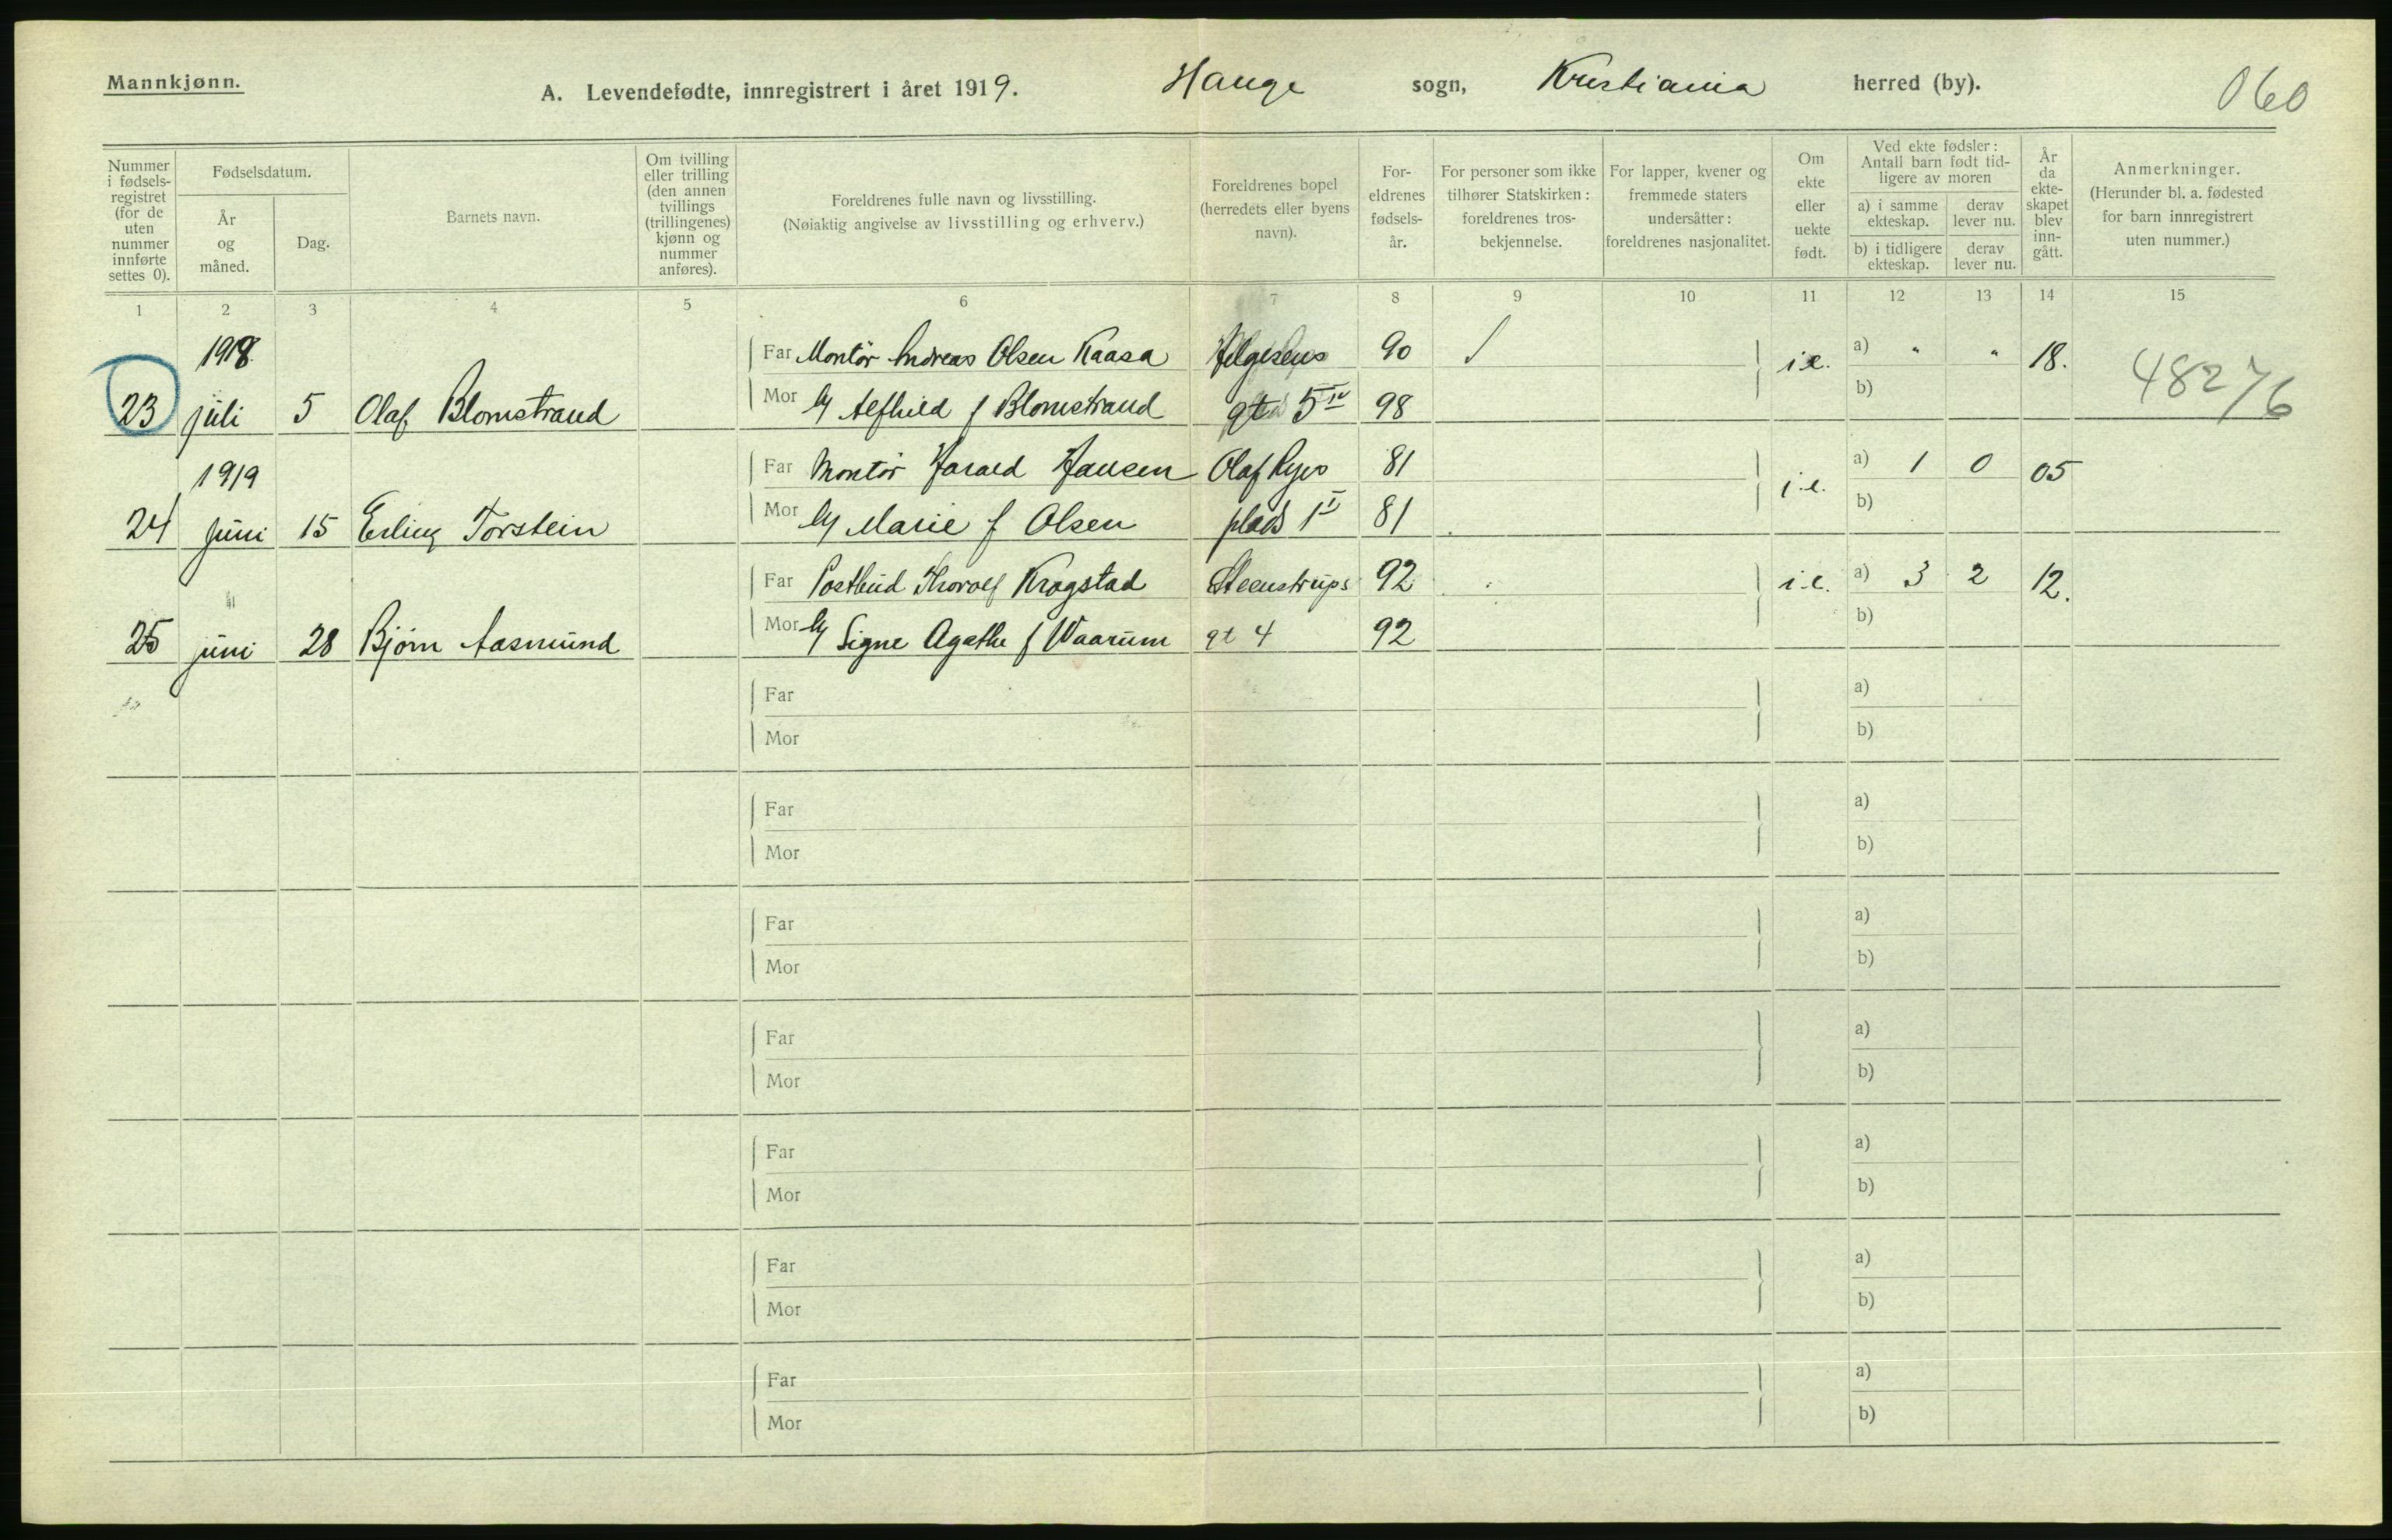 Mannkjønn.
A. Levendefødte, innregistrert i året 1919. Hauge sogn, Kristiania herred (by). 060
Nummer i fødsels-registret (for de uten nummer innførte settes 0).
Fødselsdatum.
År og måned.
Dag.
Barnets navn.
Om tvilling eller trilling (den annen tvillings (trillingenes) kjønn og nummer anføres).
Foreldrenes fulle navn og livsstilling.
(Nøiaktig angivelse av livsstilling og erhverv.)
Foreldrenes bopel (herredets eller byens navn).
For-eldrenes fødsels-år.
For personer som ikke tilhører Statskirken: foreldrenes tros-bekjennelse.
For lapper, kvener og fremmede staters undersåtter: foreldrenes nasjonalitet.
Om ekte eller uekte født.
Ved ekte fødsler: Antall barn født tid-ligere av moren
a) i samme ekteskap.
derav lever nu.
b) i tidligere ekteskap.
derav lever nu.
År da ekte-skapet blev inn-gått.
Anmerkninger.
(Herunder bl. a. fødested for barn innregistrert uten nummer.)
1 2 3 4 5 6 7 8 9 10 11 12 13 14 15
1918. Far Montör Andreas Olsen Kaasa Helgesens 90 i.e. a) " " 18. 48276
23 juli 5 Olaf Blomstrand Mor Alfhild f Blomstrand gt 5 IV 98 b)
1919 Far Montör Harald Hansen Olaf Ryes 81 i.e. a) 1 0 05
24 juni 15 Erling Torstein Mor Marie f Olsen plads 1 I 81 b)
Far Postbud Thorolf Krogstad Steenstrups 92 i.e. a) 3 2 12.
25 juni 28 Bjørn Aasmund Mor Signe Agathe f Waarum gt 4 92 b)
Far a)
Mor b)
Far a)
Mor b)
Far a)
Mor b)
Far a)
Mor b)
Far a)
Mor b)
Far a)
Mor b)
Far a)
Mor b)